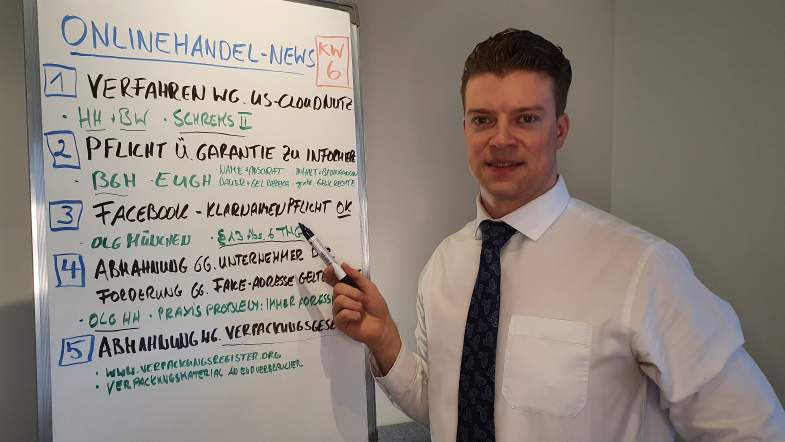 ONLINEHANDEL-NEWS
KW 6
1 VERFAHREN WG. US-CLOUDNUTZ
· HH + BW · SCHREMS II
2 PFLICHT Ü. GARANTIE ZU INFORMIE
· BGH · EUGH NAME + ANSCHRIFT INHALT +
DAUER + GELTBEREICH RECHTE
3 FACEBOOK - KLARNAMENPFLICHT OK
· OLG MÜNCHEN · § 13 Abs. 6 TMG
4 ABMAHNUNG GG. UNTERNEHMER D
FORDERUNG GG. FAKE-ADRESSE GELTE
· OLG HH · PRAXIS PROBLEM: IMMER ADRESS
5 ABMAHNUNG WG. VERPACKUNGSGESE
· WWW.VERPACKUNGSREGISTER.ORG
· VERPACKUNGSMATERIAL AN ENDVERBRAUCHER